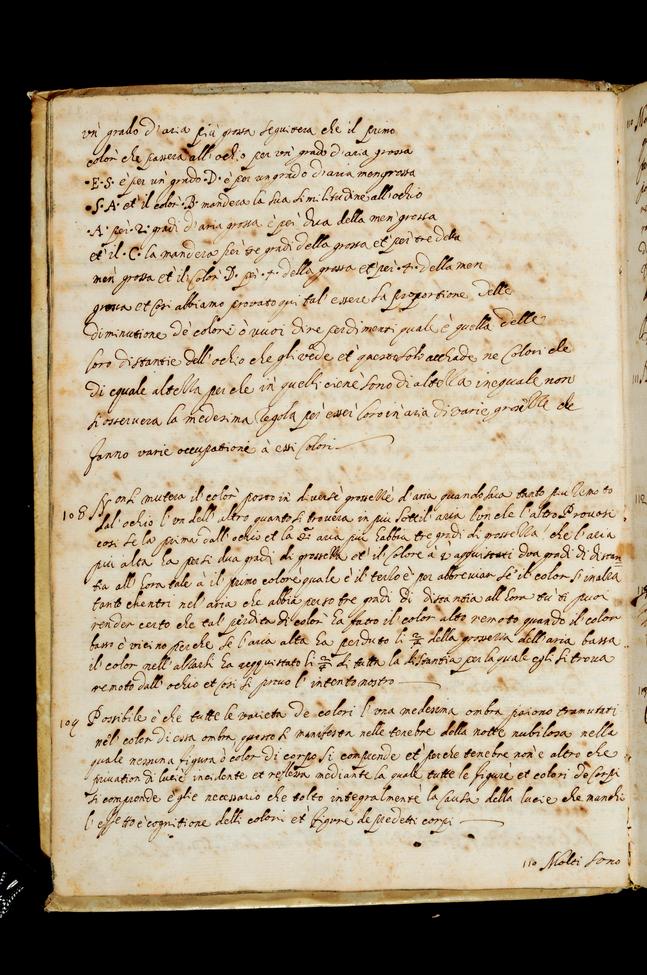 un' grado d'aria più grossa seguitera che il primo
color' che passera all'ochio per un' grado d'aria grossa
·E·S· è per un' grado ·D· è per un grado d'aria men grossa
·S·A· et il color' ·B· mandera la sua similitudine all'ochio
·A· per ·2· gradi d'aria grossa è per dua della men' grossa
et il ·C· la mandera per tre gradi della grossa et per tre dela
men' grossa et il color' D· per ·4· della grossa et per ·4· della men
grossa et cosi abbiamo provato qui tal' essere la proportione delle
diminutione de colori ò vuoi dire perdimenti quale è quella delle
loro distantie dell'ochio che gli vede et questo solo acchade ne colori che
di equale altezza perche in' quelli che sono di altezza ineguale non
si osservera la medesima regola per esser loro in aria di varie grossezze che
fanno varie occupatione à essi colori
108 Non si mutera il color' posto in diverse grossezze d'aria quando sara tanto piu remoto
dal'ochio l'un dell'altro quanto si trovera in piu sottil'aria l'un che l'altro Provasi
cosi se la prima dall'ochio et la aria più habbia tre gradi di grossezza che l'aria
più alta ha persi dua gradi di grossezza et il colore à aqquistati dua gradi di distan=
tia all'hora tale à il primo colore quale è il terzo è per abbreviar' se il color si inalza
tanto che entri nel'aria che abbia perso tre gradi di distantia all'hora tu ti puoi
render certo che tal perdita di color' ha fatto il color alto remoto quando il colore
basso è vicino perche se l'aria alta ha perduto li della grossezza dell'aria bassa
il color nell' ha aqquistato li di tutta la distantia per la quale egli si trova
remoto dall'ochio et cosi si provo l'intento nostro
109 Possibile è che tutte le varieta de colori l'una medesima ombra paiono tramutati
nel' color di essa ombra questo si manifesta nelle tenebre della notte nubilosa nella
quale nessuna figura è color' di corpo si comprende et perche tenebre non'è altro che
privation' di lucie incidente et reflessa mediante la quale tutte le figure et colori de corpi
si comprende eglie necessario che tolto integralmente la causa della lucie che manchi
l'effetto è cognitione delli colori et figure de predetti corpi
110 Molti sono